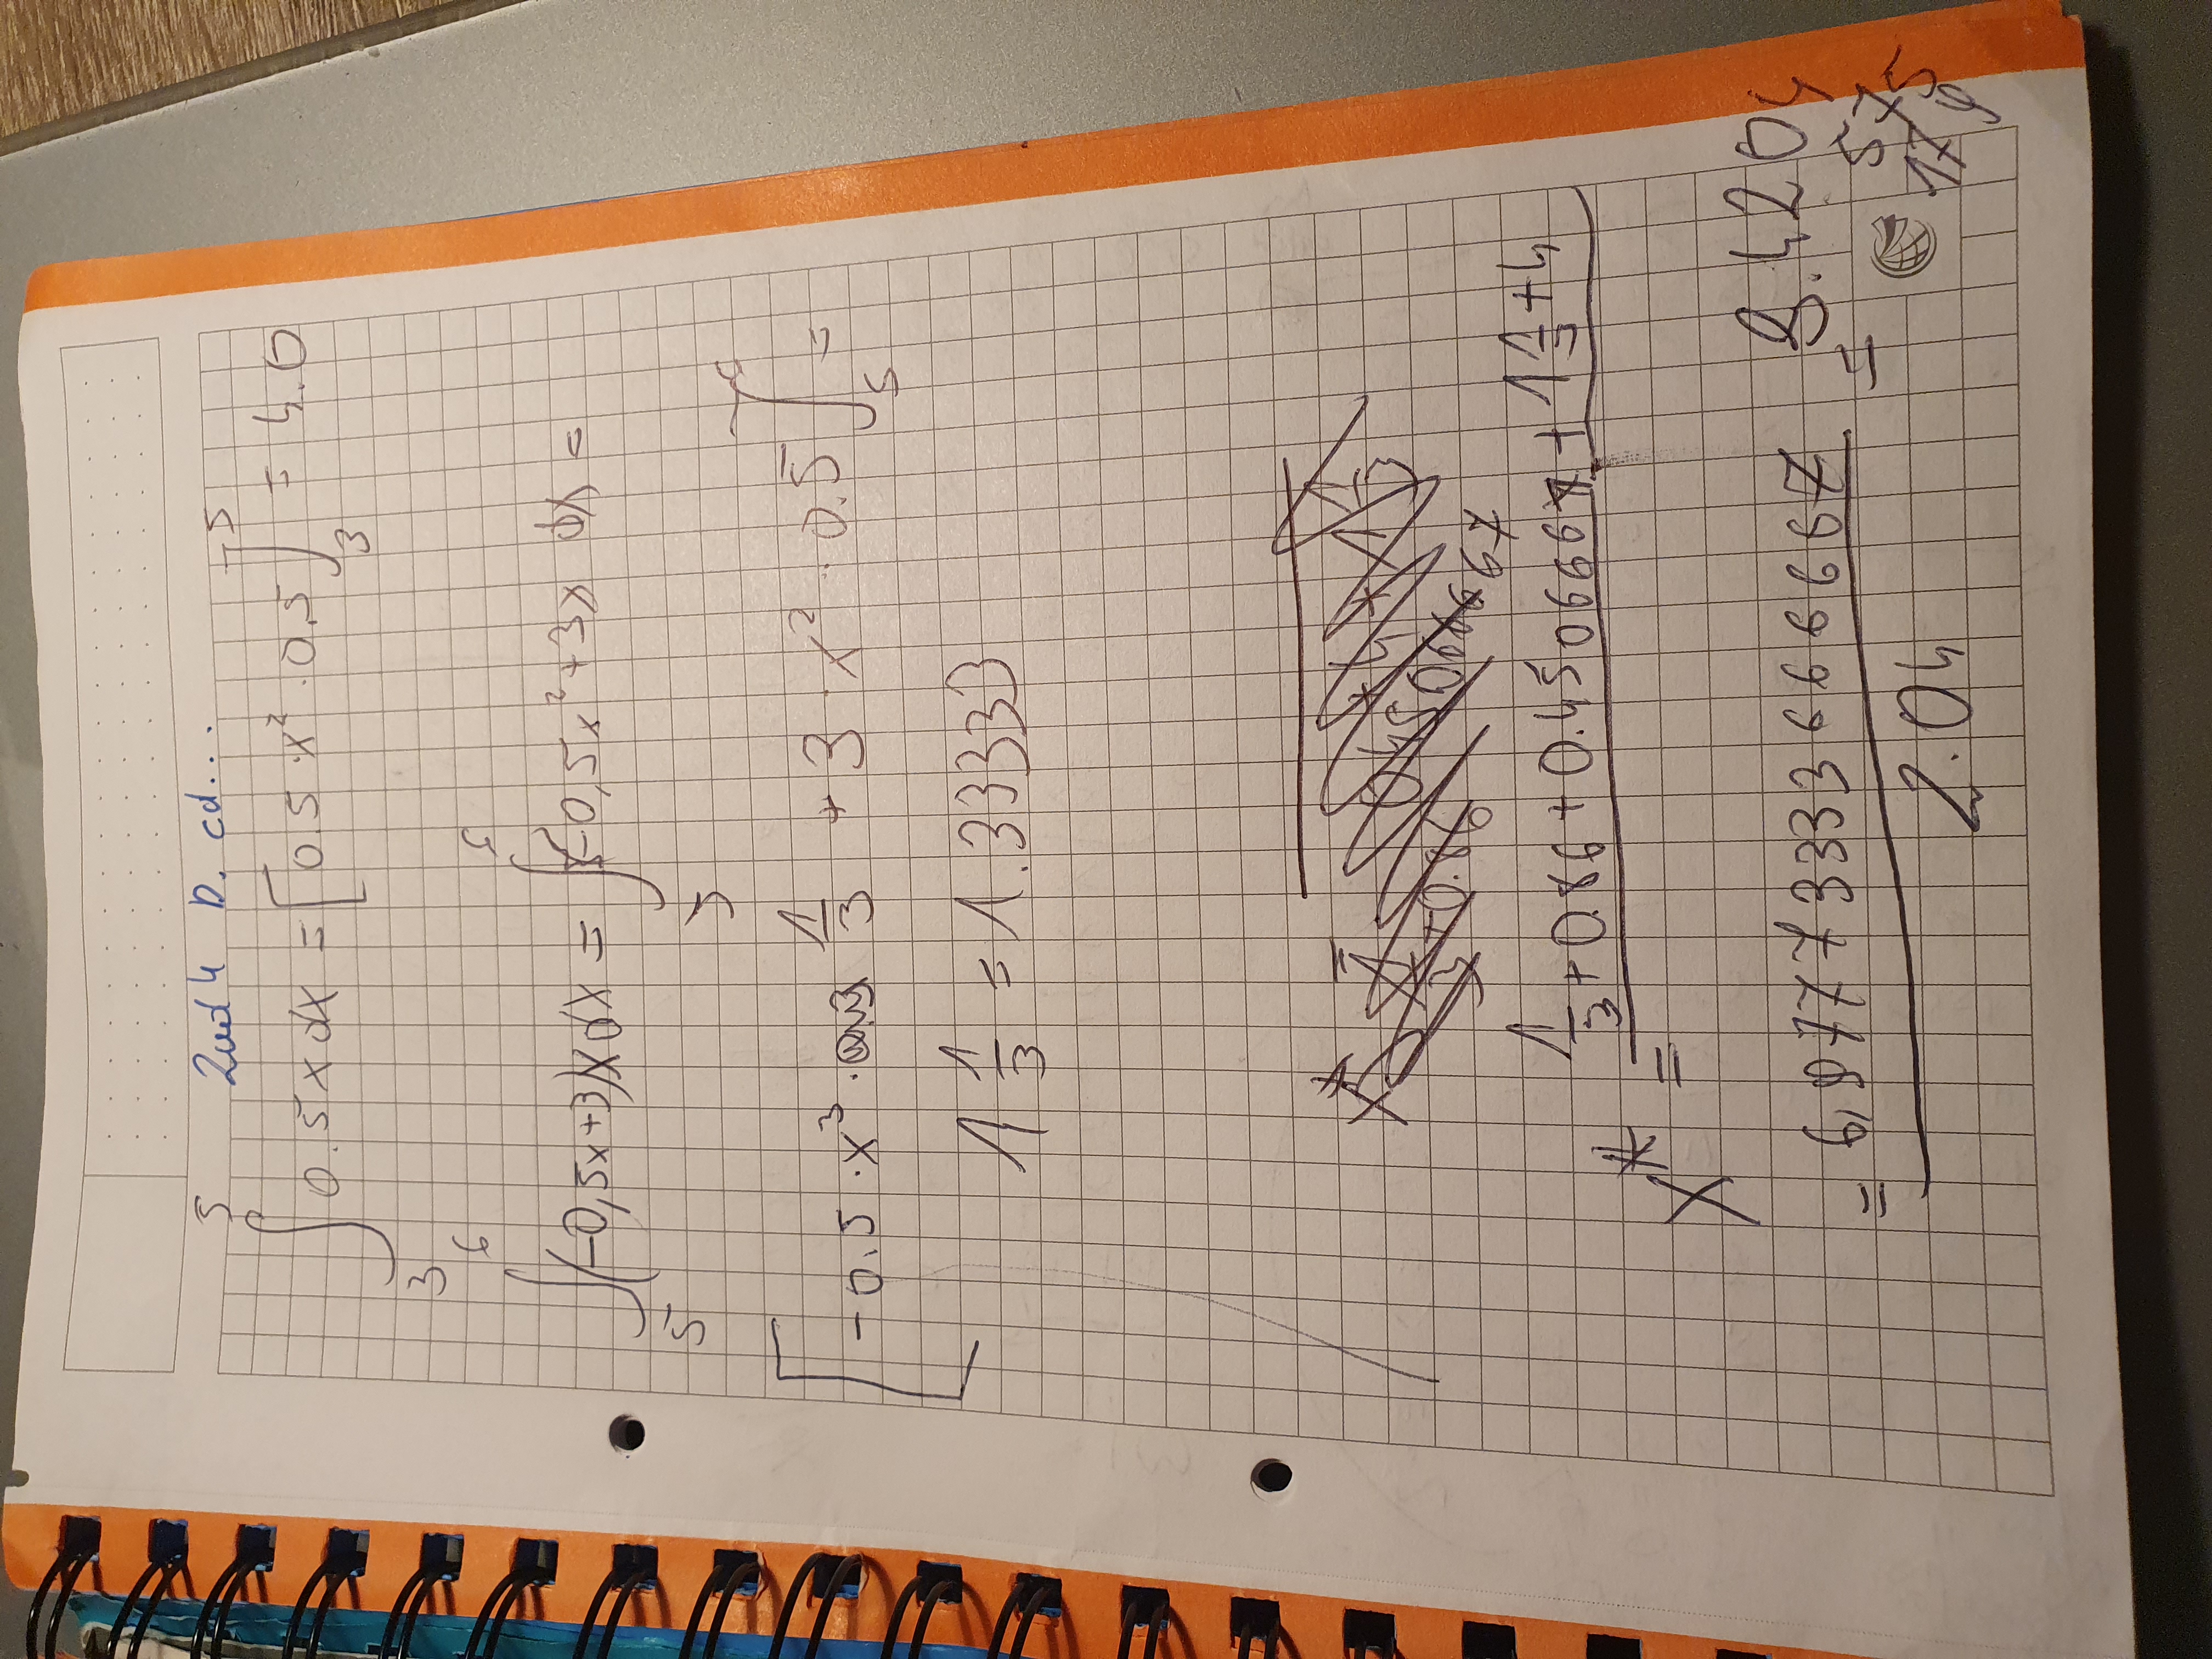 Zad 4 D. cd...
∫₃⁵ 0.5x dx = [0.5 · x² · 0.5]₃⁵ = 4.0
∫₅⁶ (-0,5x+3)x dx = ∫₅⁶ -0,5x² + 3x dx =
[-0.5 · x³ · 1/3 + 3 · x² · 0.5]₅⁶ =
1 1/3 = 1.33333
x* =
67
x* = (1/3 + 0.86 + 0.4506667 + 1 1/3 + 4)
= 6,977733336666667 / 2.04 = 3.4204
57517